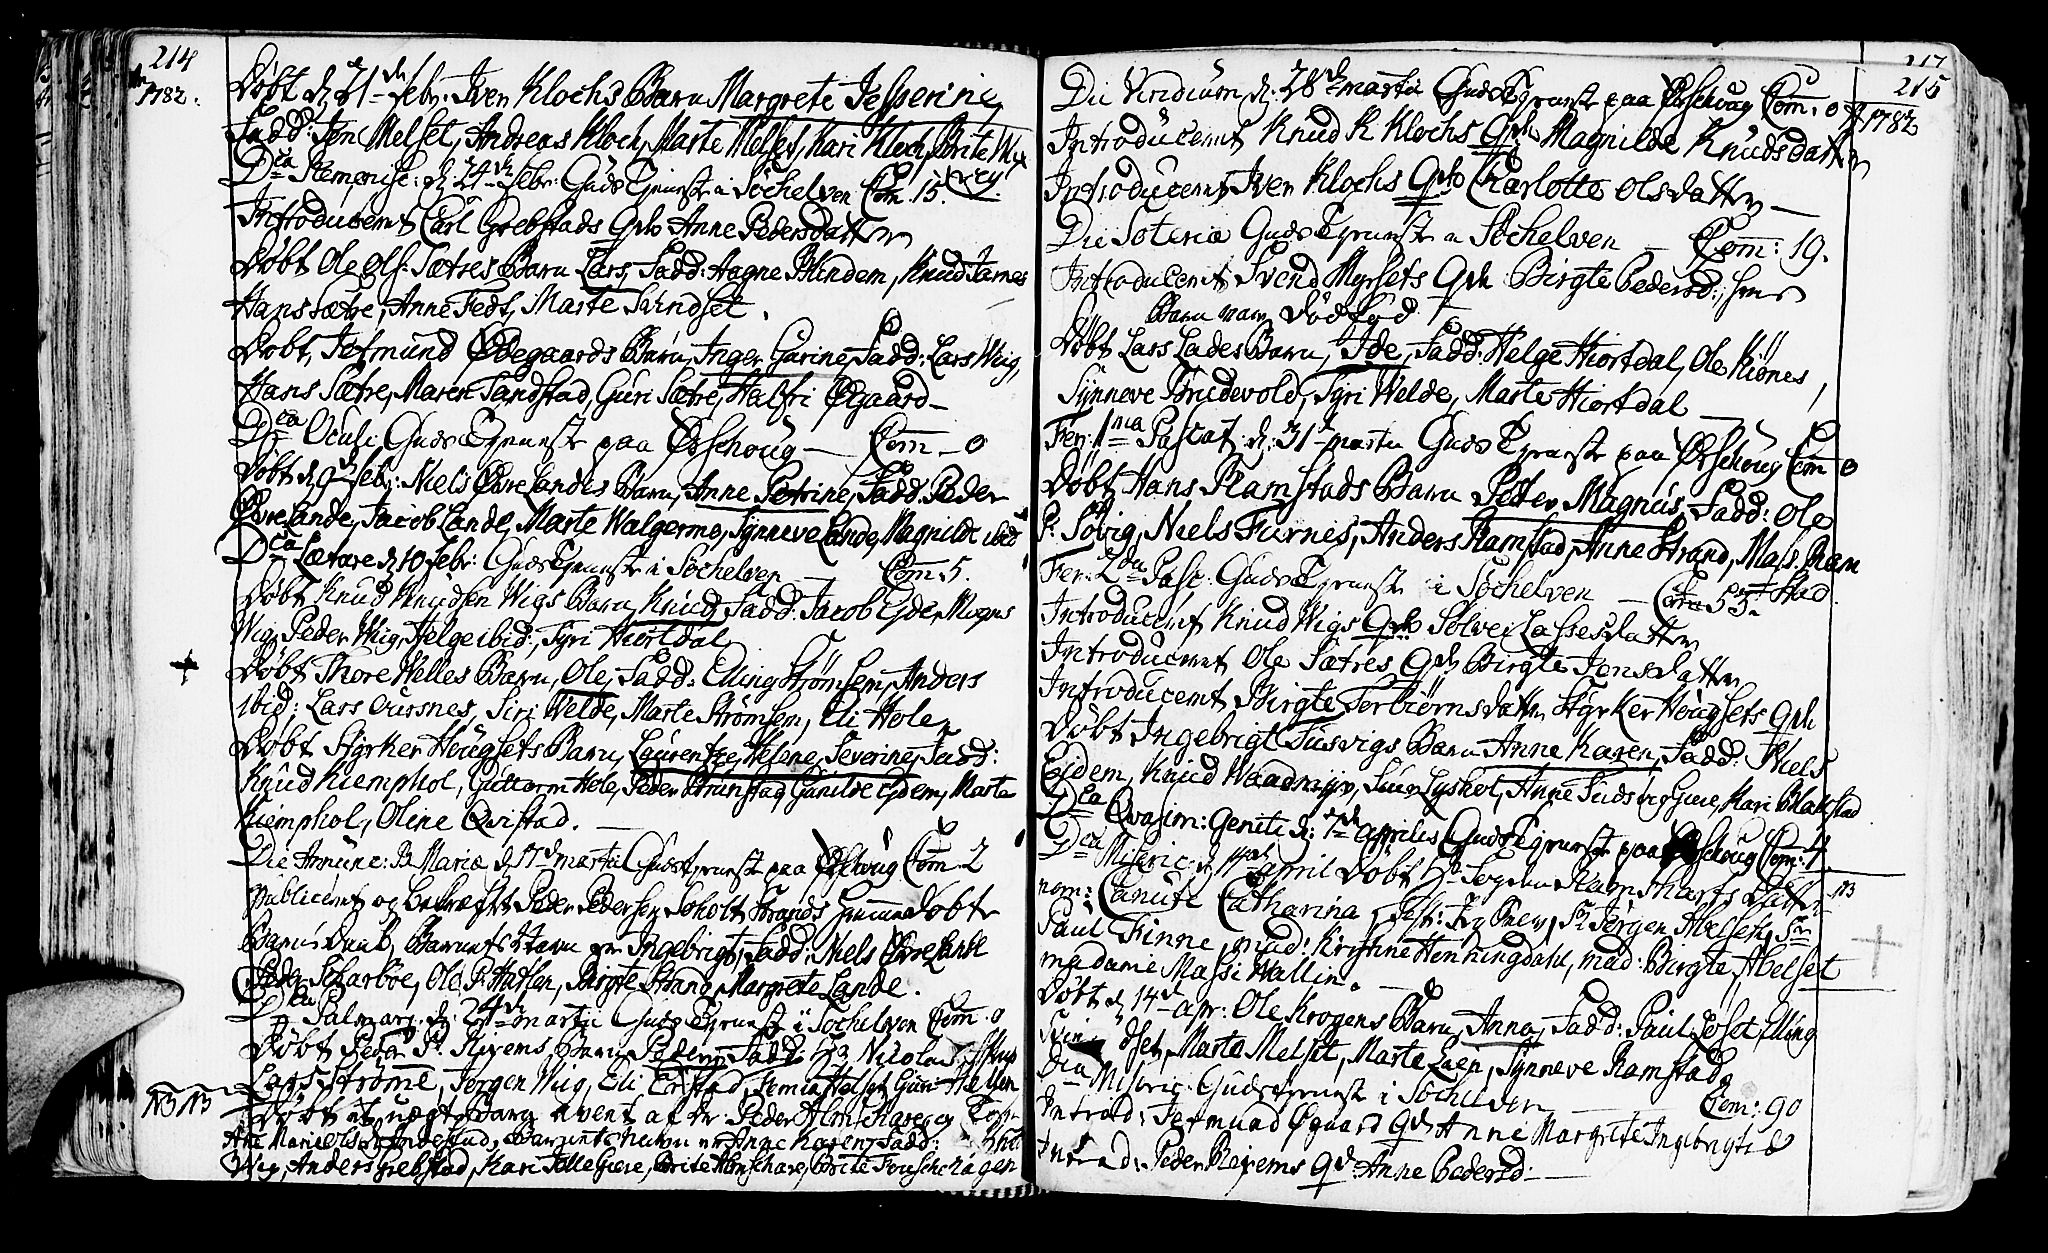 214
1782.
Døbt d: 21de Febr: Iver Klochs Barn Margrete Jesserine,
Fadd: Jon Melset, Andreas Kloch, Marte Melset, Kari Kloch, Brite Wig
Dca Remenisc: d: 24de Febr: Guds Tienste i Søchelven Com. 15.
Introduceret Carl Grebstads Qvk Anne Pedersdatter
Døbt Ole Ols: Sætres Barn Lars, Fadd: Aagne Blindem, Knud Tarnes
Hans Sætre, Anne Fedt, Marte Svindset.
Døbt, Jetmund Ødegaards Barn, Inger Gurine, Fadd: Lars Wiig,
Hans Sætre, Maren Sandstad, Guri Sætre, Halfri Øgaard
Dca Oculi Guds Tienste paa Ørschoug Com. 0
Døbt d 9de Febr: Niels Øvre Landes Barn, Anne Petrine, Fadd. Peder
Øvre Lande, Jacob Lande, Marte Walgermo, Synneve Lande, Magnilde ibid
Dca Lætare d 10 Febr: Guds Tienste i Søchelven Com. 5.
Døbt Knud Knudsen Wigs Barn, Knud, Fadd: Jacob Eyde, Mogns
Wig, Peder Wiig, Helge ibid:, Tyri Hiortdal
Døbt Thore Welles Barn, Ole, Fadd: Elling Strømsem, Anders
ibid: Lars Aursnes, Siri Welde, Marte Strømsem, Eli Hole
Døbt Styrker Hougsets Barn, Laurentze, Helene, Severine, Fadd:
Knud Kiemphol, Guttorm Hole, Peder Brunstad, Gunilde Eydem, Marte
Kiemphol, Oline Qvistad.
Die Annunc: B Mariæ d 17de martii Guds Tienste paa Ørschoug Com. 2
Publiceret og bekræftet Peder Pedersen Soholt Strands Hiemme Døbte
Barns Daab, Barnets Navn er Ingebrigt, Fadd: Niels Øvre Lande
Peder Scharbøe, Ole P. Hatlen, Birgte Strand, Margrete Lande.
Dca Palmar: d: 24de martii Guds Tienste i Søchelven Com. 0
Døbt Peder P: Ryems Barn Peder, Fadd Hr. Nicolai
Lars Strømme, Jørgen Wiig, Eli Erstad,
NB NB Døbt et uægte Barn avent af Peder Almschare og
Ane Marie Olsd: Barnets navn er Anne Karen, Fadd:
Wig, Anders Grebstad, Kari Tellegiere, Brite Almschare, Brite
215
1782
Die Viridium d: 28de martii Guds Tienste paa Ørschoug Com. 0
Introduceret Knud K Klochs Qvk Magnilde Knudsdatter
Introduceret, Iver Klochs Qvk Charlotte Olsdatter
Die Soteriæ Guds Tienste i Søchelven Com: 19.
Introduceret Svend Myrsets Qvk Birgte Pedersd:, hvis
Barn var Dødfød
Døbt Lars Lades Barn, Ide, Fadd: Helge Hiortdal, Ole Kiønes
Synneve Brudevold, Tyri Welde, Marte Hiortdal
Fer: 1ma Pascat: d: 31te martii Guds Tienste paa Ørschoug Com 0
Døbt Hans Ramstads Barn Peder, Magnus, Fadd: Ole
P: Søvig, Niels Furnes, Anders Ramstad, Anne Strand, Mals: Ram
Fer: 2da Pasc: Guds Tienste i Søchelven Com 55. stad.
Introduceret Knud Wigs Qvk Solvei Lassesdatter
Introduceret Ole Sætres Qvk Birgte Jensdatter
Introduceret Birgte Torbiørnsdatter Styrker Hougsets Qvk
Døbt Ingebrigt Tusvigs Barn Anne Karen, Fadd: Niels
Eydem, Knud Waadmyr, Siur Lyshol, Anne Tusvig, Kari Blakstad
Dca Qvasim: Geniti d: 7de aprilis Guds Tienste paa Ørschoug Com: 4
Dca Miseric: d 14de April Døbt Hr. Fogden Ramshart's Datter NB
nom: Canute Catharina, Test: Sr Jørgen Abelset, Sr
Paul Finne, mad: Kristine Henningdahl, mad: Birgte Abelset
madame Massi Wallin.
Døbt d 14de apr: Ole Krogens Barn, Anna, Fadd: Paul Løset, Elling
Svindset, Marte Melset, Marte Læen, Synneve Ramstad.
Dca Miseric: Guds Tienste i Søchelven Com: 90
Introd: Jetmund Øgaard Qvk Anne Margrete Ingebrigtsd
Introd: Peder Ryems Qvk Anne Pedersd: